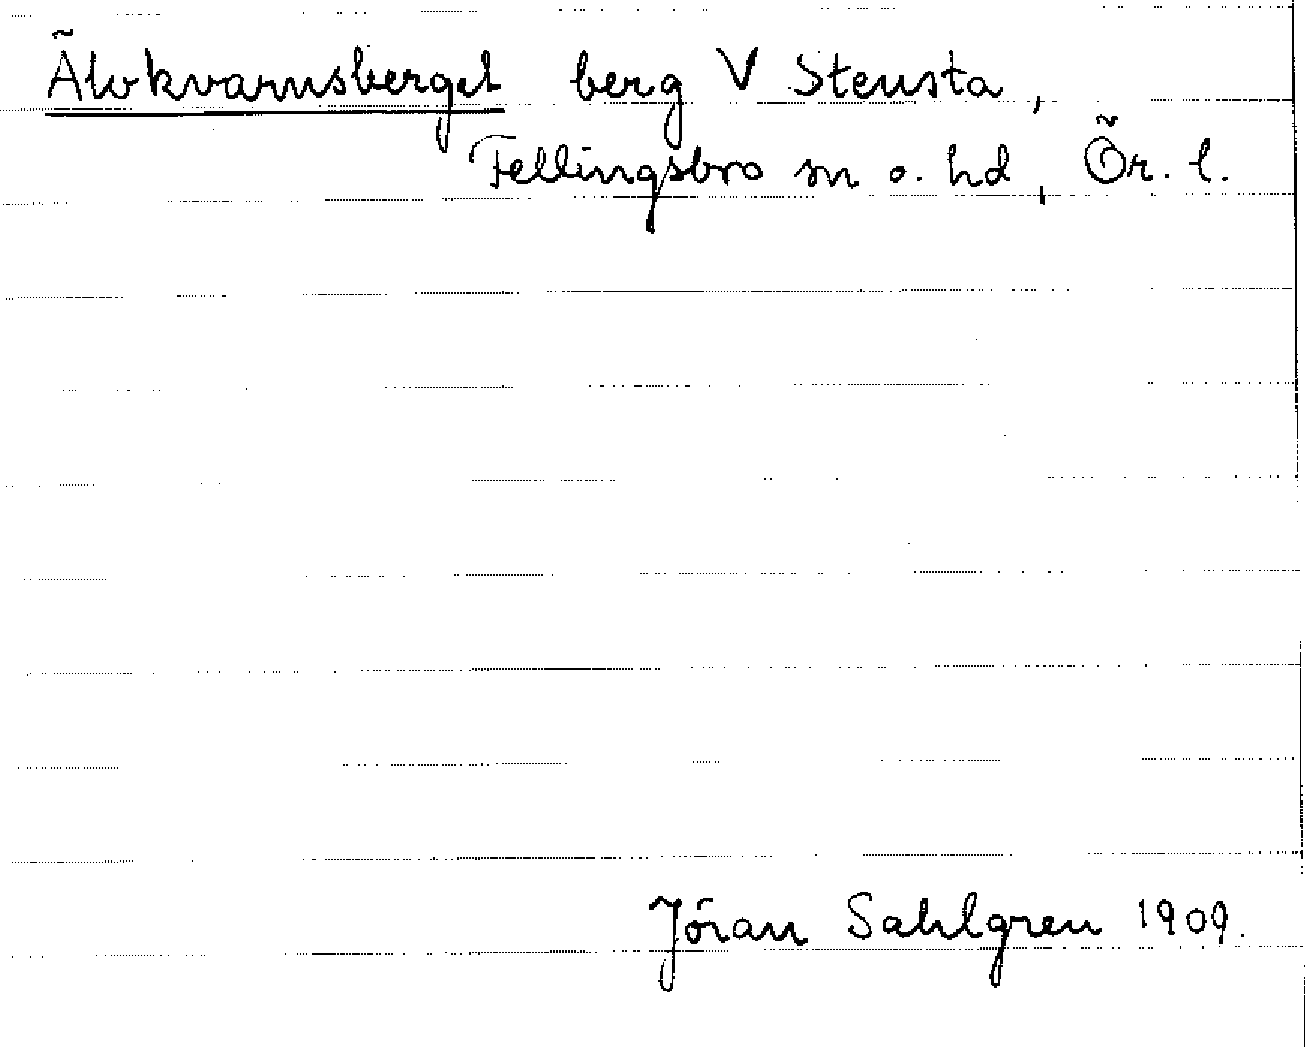 Älvkvarnsberget berg V Stensta,
Fellingsbro sn o. hd, Ör. l.
Jöran Sahlgren 1909.